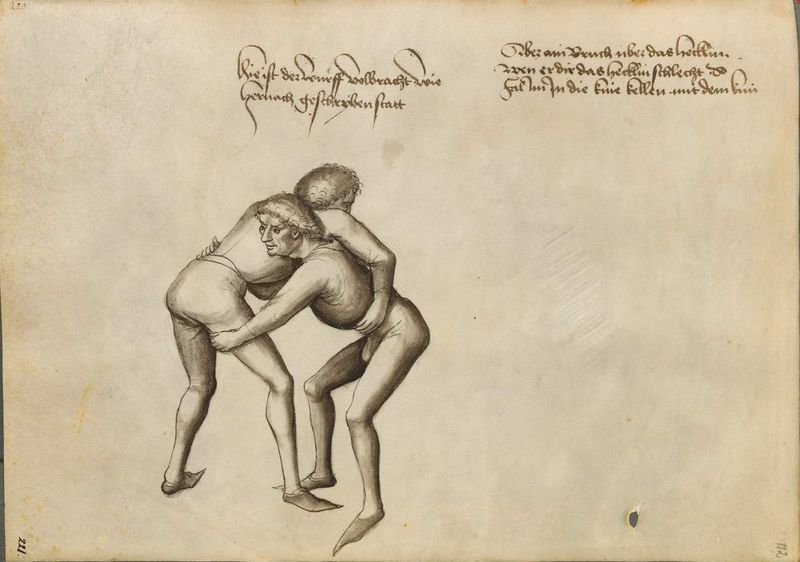 220
Hie ist der wurff volbracht wie
hernach geschryben statt
Aber ain bruch uber das hecklin.
wen er dir das hecklin schlecht So
fal Im In die knie kellen mit dem knü
221.
112